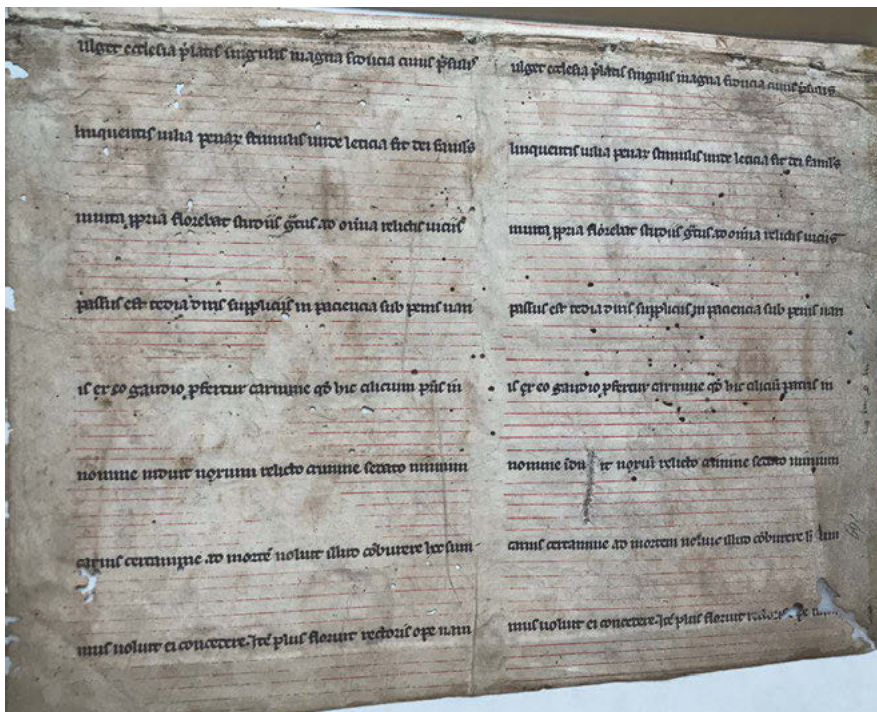 ulget ecclesia p̄latis singulis magna fiducia cuius p̄sulis
linquentis uilia penarꝝ stimulis unde leticia fit dei famil̓s
munda ꝓpria florebat studiis gr̄tus ad om̄ia relictis uiciis
passus est tedia diuis suppliciis in paciencia sub penis uari
is er eo gaudio p̱fertur carmine qd̄ hic cilicium pr̄is in
nomine induit nequm̄ relicto crimine sedato nimium
carnis certamine ad mortē uoluit illud cōburere
mus uoluit ei concedere. Itē plus floruit rectoris ope nam
ulget ecclesia p̄latis singulis magna fiducia cuius p̄sulis
linquentis uilia penarꝝ stimulis unde leticia fit dei famil̓s
munda ꝓpria florebat studiis gr̄tus ad om̄ia relictis uiciis
passus est tedia diuis suppliciis in paciencia sub penis uari
is er eo gaudio p̱fertur carmine qd̄ hic ciliciū patris in
nomine īdu it relicto crimine sedato nimium
carnis certamine ad mortem uoluit illud cōburere
mus uoluit ei concedere. Itē plus floruit